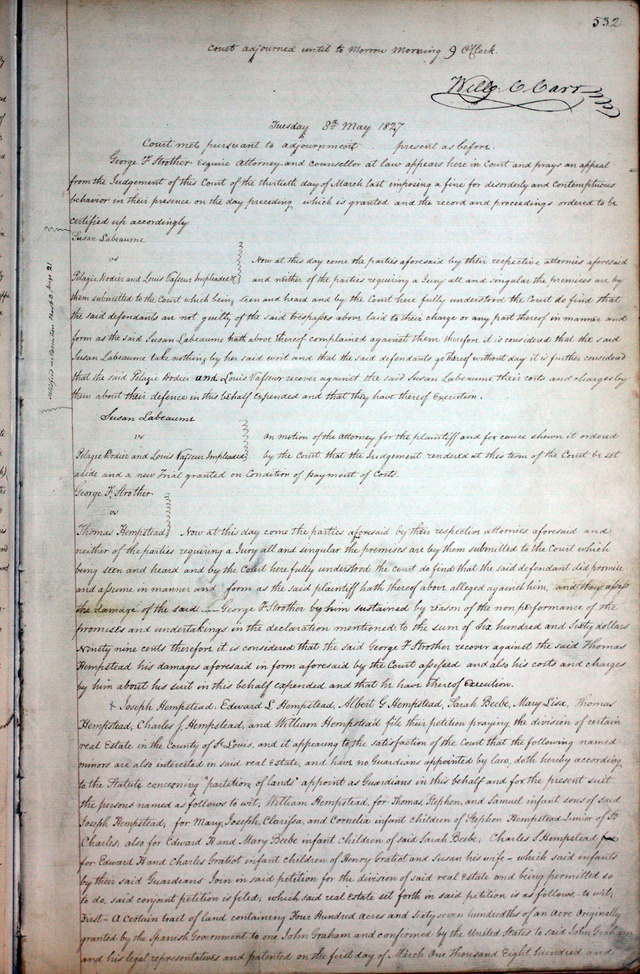 532
Court adjourned until to Morrow Morning 9 O'Clock.
Wm. C Carr
Tuesday 8th May 1827
Court met pursuant to adjournment . present as before.
George F Strother Esquire Attorney and counsellor at law appears here in Court and prays an appeal
from the Judgement of this Court of the thirtieth day of March last imposing a fine for disorderly and contemptuous
behavior in their presence on the day preceding which is granted and the record and proceedings ordered to be
certified up accordingly
Susan Labeaume
vs
Pelagie Rodier and Louis Vasseur Impleaded &c
Now at this day come the parties aforesaid by their respective attornies aforesaid
and neither of the parties requiring a Jury all and singular the premises are by
them submitted to the Court which being seen and heard and by the Court here fully understood the Court do find that
the said defendants are not guilty of the said trespasses above laid to their charge or any part thereof in manner and
form as the said Susan Labeaume hath above thereof complained against them therefore it is considered that the said
Susan Labeaume take nothing by her said writ and that the said defendants go thereof without day it is further considered
that the said Pelagie Rodier and Louis Vasseur recover against the said Susan Labeaume their costs and charges by
them about their defence in this behalf expended and that they have thereof Execution.
Susan Labeaume
vs
Pelagie Rodier and Louis Vasseur Impleaded
On motion of the Attorney for the plaintiff and for cause shewn it ordered
by the Court that the Judgement rendered at this term of the Court be set
aside and a new Trial granted on Condition of payment of Costs.
George F. Strother
vs
Thomas Hempstead
Now at this day come the parties aforesaid by their respective attornies aforesaid and
neither of the parties requiring a Jury all and singular the premises are by them submitted to the Court which
being seen and heard and by the Court here fully understood the court do find that the said defendant did promise
and assume in manner and form as the said plaintiff hath thereof above alleged against him, and they assess
the damage of the said George F Strother by him sustained by reason of the nonperformance of the
promises and undertakings in the declaration mentioned to the sum of Six hundred and Sixty dollars
Ninety nine cents therefore it is considered that the said George F Strother recover against the said Thomas
Hempstead his damages aforesaid in form aforesaid by the Court assessed and also his costs and charges
by him about his suit in this behalf expended and that he have thereof Execution.
+ Joseph Hempstead, Edward L Hempstead, Albert G Hempstead, Sarah Beebe, Mary Lisa, Thomas
Hempstead, Charles S. Hempstead, and William Hempstead file their petition praying the division of certain
real Estate in the County of St Louis, and it appearing to the satisfaction of the Court that the following named
minors are also interested in said real estate, and have no Guardians appointed by law, doth hereby according
to the Statute concerning "partition of lands" appoint as Guardians in this behalf and for the present suit
the persons named as follows to wit, William Hempstead, for Thomas Stephen, and Samuel infant sons of said
Joseph Hempstead; for Mary, Joseph, Clarissa, and Cornelia infant children of Stephen Hempstead Junior of St
Charles; also for Edward H and Mary Beebe infant children of said Sarah Beebe; Charles S Hempstead
for Edward H and Charles Gratiot infant children of Henry Gratiot and Susan his wife – which said infants
by their said Guardians Join in said petition for the division of said real Estate and being permitted so
to do, said conjoint petition is filed, which said real estate set forth in said petition is as follows, to wit,
First – A certain tract of land containing Four Hundred Acres and Sixty seven hundredths of an Acre Originally
granted by the Spanish Government to one John Graham and confirmed by the United States to said John Graham
and his legal representatives and patented on the first day of March One Thousand Eight hundred and